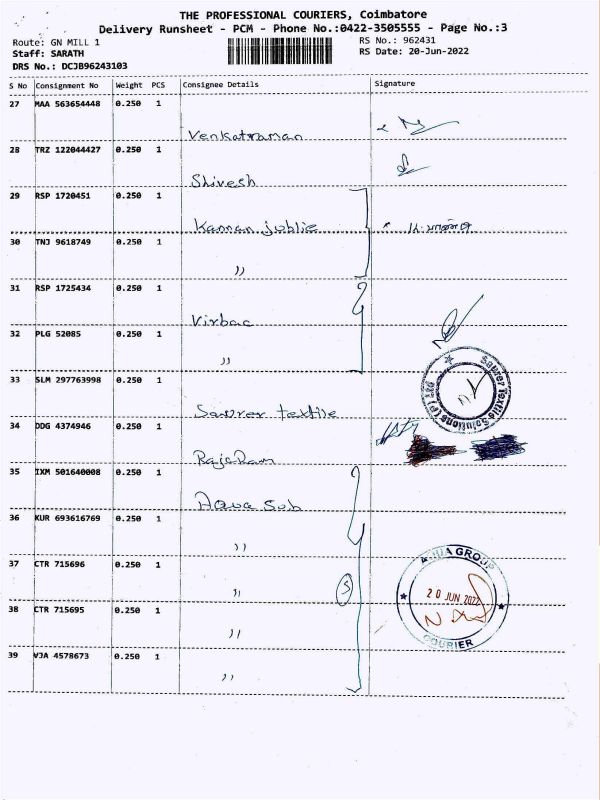 THE PROFESSIONAL COURIERS, Coimbatore
Delivery Runsheet - PCM - Phone No.:0422-3505555 - Page No.:3
Route: GN MILL 1
RS No.: 962431
Staff: SARATH
RS Date: 20-Jun-2022
DRS No.: DCJB96243103
S No Consignment No Weight PCS Consignee Details Signature
27 MAA 563654448 0.250 1
Venkatraman
28 TRZ 122044427 0.250 1
Shivesh
29 RSP 1720451 0.250 1
Kannan jublie
30 TNJ 9618749 0.250 1
,,
31 RSP 1725434 0.250 1
Virbac
32 PLG 52085 0.250 1
,,
33 SLM 297763998 0.250 1
Saurer textile
Saurer Textile Solutions (P) Ltd
34 DDG 4374946 0.250 1
RajaRam
35 IXM 501640008 0.250 1
Aqua Sub
36 KUR 693616769 0.250 1
,,
37 CTR 715696 0.250 1
,, 5
AQUA GROUP
20 JUN 2022
COURIER
38 CTR 715695 0.250 1
,,
39 VJA 4578673 0.250 1
,,